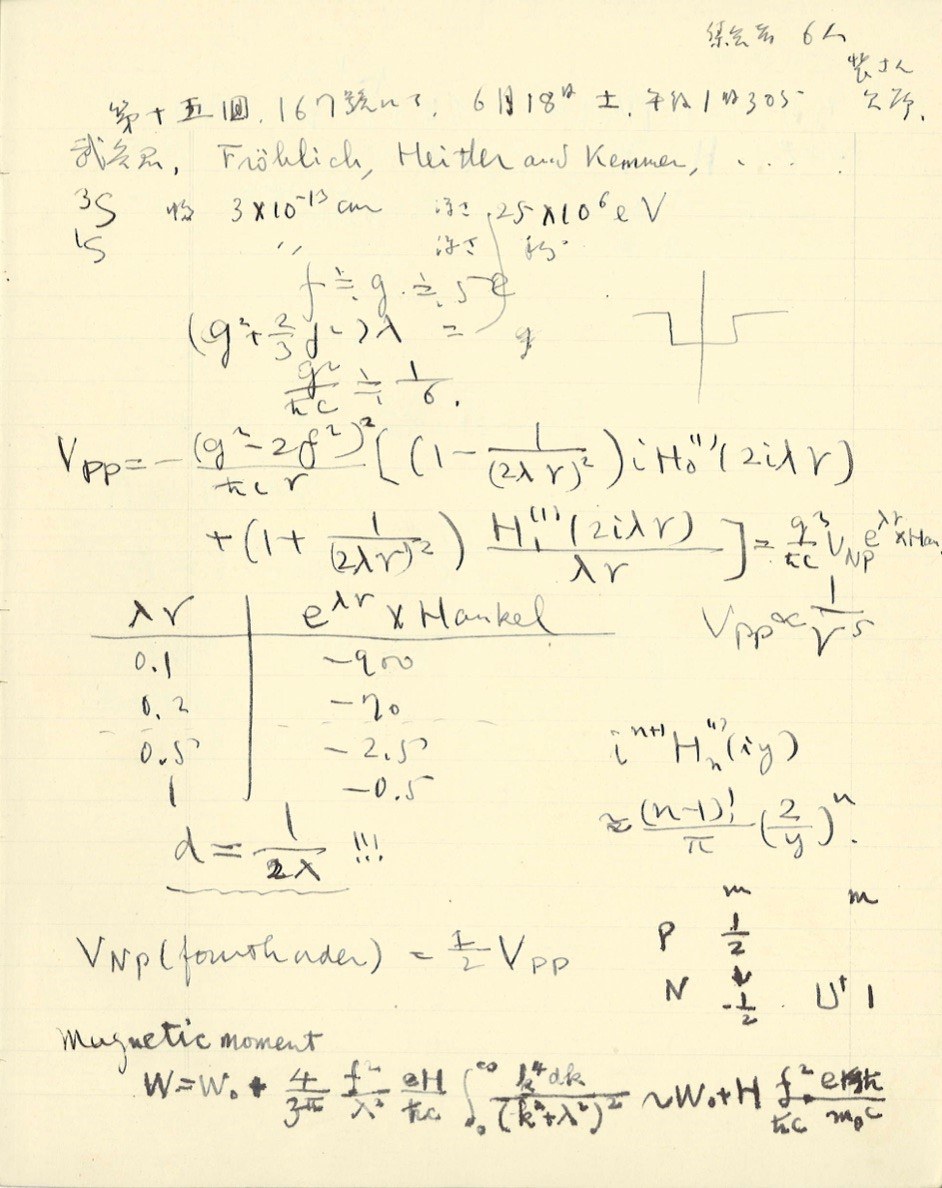 6人
欠席.
第十五回. 167號ニテ. 6月18日 土. 午後1時30分
武谷君, Fröhlich, Heitler and Kemmer, ....
³S 3×10⁻¹³ cm 深さ 25×10⁶ eV
¹S 〃 深さ
f ≒ g ≒ 5e
(g²+⅔f²)λ =
g²/ħc ≒ 1/6.
V_PP = -(g²-2f²)²/ħcr [(1-1/(2λr)²) i H₀⁽¹⁾(2iλr)
+(1+1/(2λr)²) H₁⁽¹⁾(2iλr)/λr] = g²/ħc V_NP e^λr × Han.
V_PP ∝ 1/r⁵
λr | e^λr × Hankel
0.1 | -900
0.2 | -70
0.5 | -2.5
1 | -0.5
iⁿ⁺¹ Hₙ⁽¹⁾(iy)
≈ (n-1)!/π (2/y)ⁿ.
d = 1/2λ !!!
m m
P 1/2
N -1/2 U⁺ 1
V_NP (fourth order) = 1/2 V_PP
Magnetic moment
W = W₀ + 4/3π f²/λ² eH/ħc ∫₀^∞ k⁴dk/(k²+λ²)² ~ W₀ + H f²/ħc eħ/m₀c